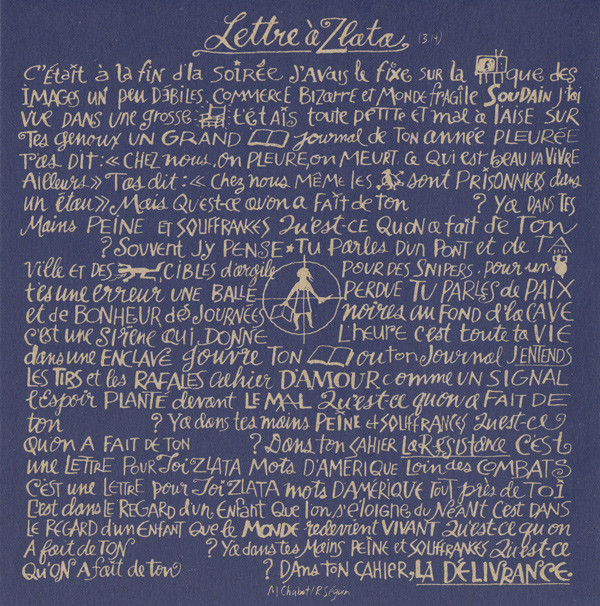 Lettre à Zlata (3:14)
C'était à la fin d'la soirée j'avais le fixe sur la que des
images un peu débiles commerce bizarre et monde fragile soudain j't'ai
vue dans une grosse t'étais toute petite et mal à l'aise sur
tes genoux un grand journal de ton année pleurée
T'as dit: « chez nous, on pleure, on meurt à qui est beau va vivre
ailleurs » T'as dit: « chez nous même les sont prisonniers dans
un étau » Mais qu'est-ce qu'on a fait de ton ? Ya dans tes
mains peine et souffrances Qu'est-ce qu'on a fait de ton
? Souvent j'y pense Tu parles d'un pont et de ta
ville et des cibles d'argile pour des snipers, pour un
t'es une erreur une balle perdue Tu parles de paix
et de bonheur des journées noires au fond d'la cave
c'est une sirène qui donne l'heure c'est toute ta vie
dans une enclave j'ouvre ton ou ton journal j'entends
les tirs et les rafales cahier d'amour comme un signal
l'espoir planté devant le mal Qu'est-ce qu'on a fait de
ton ? Ya dans tes mains peine et souffrances Qu'est-ce
qu'on a fait de ton ? Dans ton cahier la résistance C'est
une lettre pour toi Zlata mots d'Amérique loin des combats
C'est une lettre pour toi Zlata mots d'Amérique tout près de toi
C'est dans le regard d'un enfant que l'on s'éloigne du néant C'est dans
le regard d'un enfant que le monde redevient vivant Qu'est-ce qu'on
a fait de ton ? Ya dans tes mains peine et souffrances Qu'est-ce
qu'on a fait de ton ? Dans ton cahier, la délivrance.
M Chabot/R Séguin